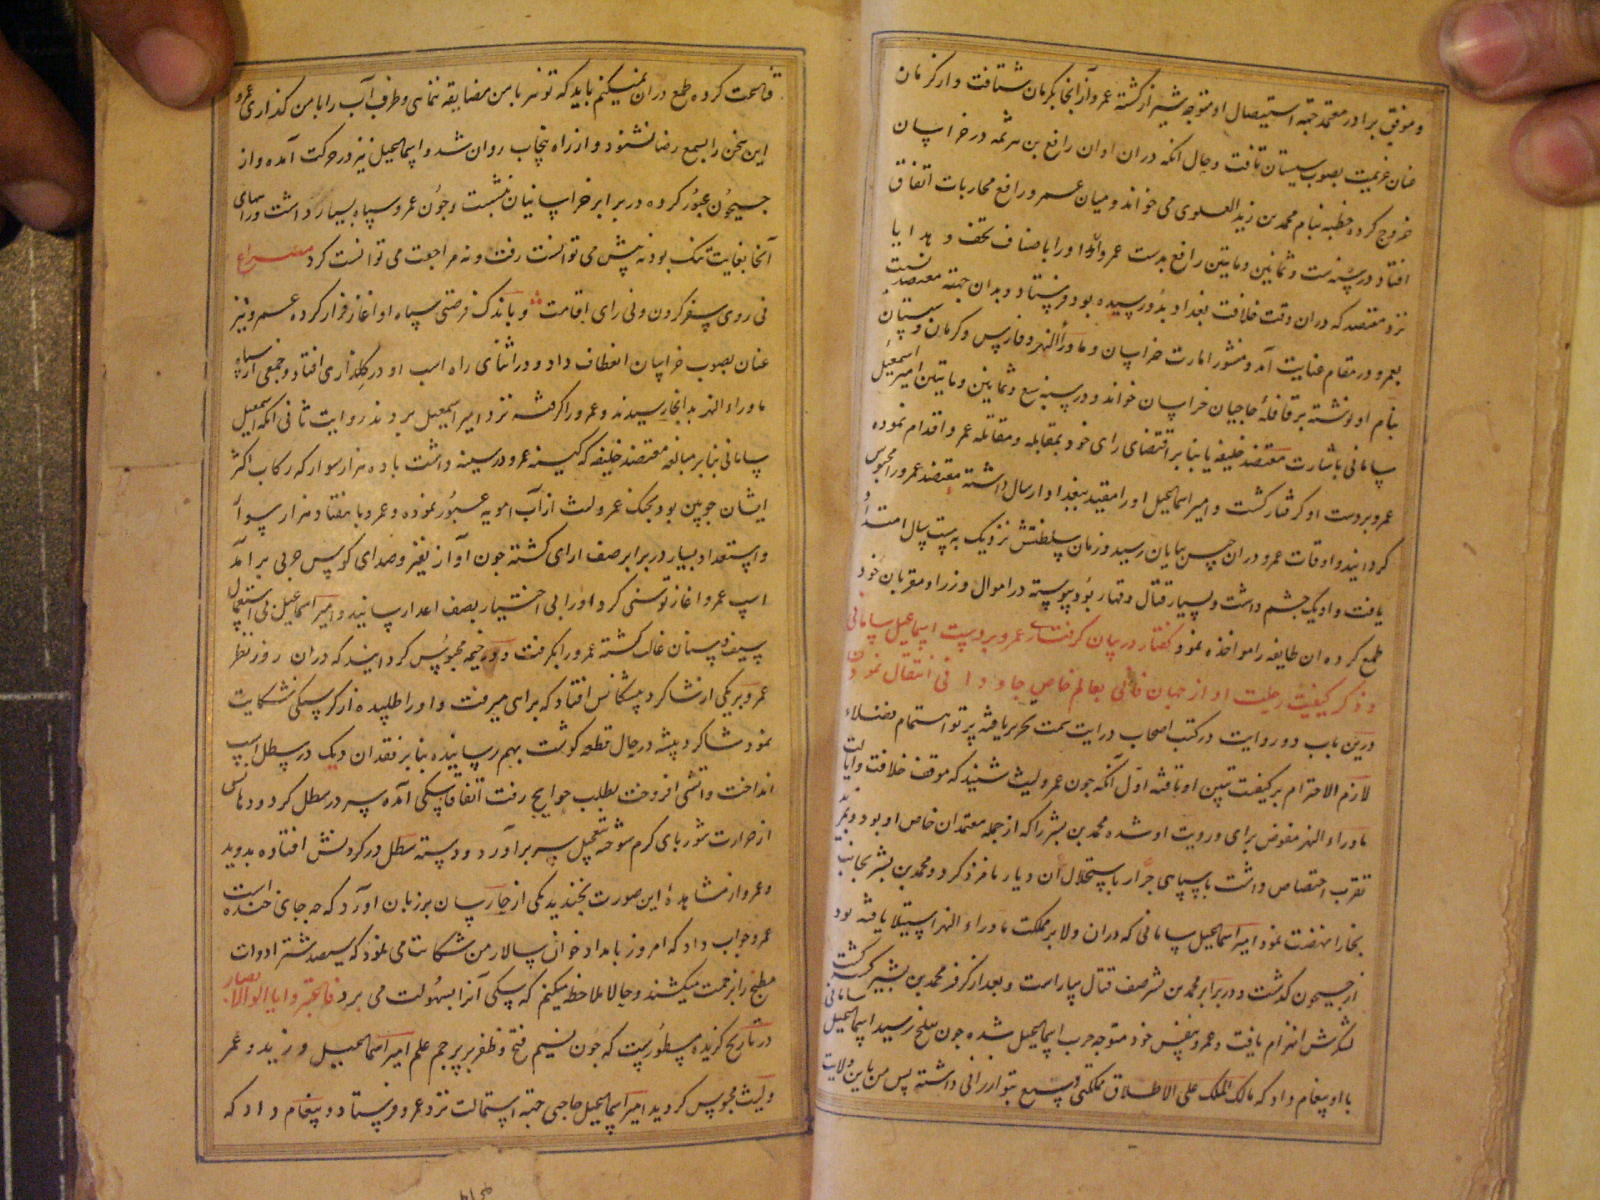 و موفق برادر معتمد جهته استیصال او متوجه شیراز گشته عمرو از آنجا بکرمان شتافت و از کرمان
عنان عزیمت بصوب سیستان تافت و حال آنکه دران اوان رافع بن هرثمه در خراسان
خروج کرده خطبه بنام محمد بن زید العلوی می خواند و میان عمرو و رافع محاربات اتفاق
افتاد در سنه ست و ثمانین و ماتین رافع بدست عمرو او را باصناف تحف و هدایا
نزد معتضد که دران وقت خلافت بغداد بدو رسیده بود فرستاد و بدان جهته معتضد نسبت
بعمرو در مقام عنایت آمد و منشور امارت خراسان و ماوراالنهر و فارس و کرمان و سیستان
بنام او نوشته بر قافلهٔ حاجیان خراسان خواند و در سنه سبع و ثمانین و ماتین امیر اسمعیل
سامانی باشارت معتضد خلیفه یا بنا بر اقتضای رای خود بمقابله و مقاتله عمرو اقدام نموده
عمرو بردست او گرفتار گشت و امیر اسماعیل او را مقید ببغداد ارسال داشته معتضد عمرو را محبوس
گردانید و اوقات عمرو دران حبس بپایان رسید و زمان سلطنتش نزدیک به بیست سال امتداد
یافت و او یک چشم داشت و بسیار قتال و قهار بود و پیوسته در اموال وزرا و مقربان خود
طمع کرده ان طایفه را مواخذه نمود گفتار در بیان گرفتاری عمرو بردست اسماعیل سامانی
و ذکر کیفیت رحلت او از جهان فانی بعالم خاص جاودانی انتقال نمودن
درین باب دو روایت در کتب اصحاب درایت سمت تحریر یافته پرتو اهتمام فضلاء
لازم الاحترام بر کیفیت تبیین او تافته اول آنکه جون عمرو لیث شنید که موقف خلافت ولایت
ماوراء النهر مفوض برای و رویت او شده محمد بن بشر را که از جمله معتمدان خاص او بود و بمزید
تقرب اختصاص داشت با سپاهی جرار باستخلال آن دیار نامزد کرد و محمد بن بشر بجانب
بخارا نهضت نمود امیر اسماعیل سامانی که دران ولا بر مملکت ماوراء النهر استیلا یافته بود
از جیحون گذشت و در برابر محمد بن بشر صف قتال بیاراست و بعد از کر و فر محمد بن بشیر کشته گشت
لشکرش انهزام یافت و عمرو بنفس خود متوجه حرب اسماعیل شده جون ببلخ رسید اسماعیل سامانی
با او پیغام داد که مالک الملک علی الاطلاق مملکتی وسیع بتو ارزانی داشته پس من باین ولایت
قناعت کرده طمع دران نمیکنم باید که تو نیز با من مضایقه ننمایی و طرف آب را با من گذاری عمرو
این سخن را بسمع رضا نشنود و از راه پنجاب روان شد و اسماعیل نیز در حرکت آمده و از
جیحون عبور کرده در برابر خراسانیان نشست و جون عمرو سپاه بسیار داشت و راههای
آنجا بغایت تنک بود نه پیش می توانست رفت و نه مراجعت می توانست کرد مصراع
نی روی سفر کردن و نی رای اقامت و باندک فرصتی سپاه او اغاز فرار کرده عمرو نیز
عنان بصوب خراسان انعطاف داد و در اثنای راه اسب او در کلذاری افتاد و جمعی از سپاه
ماوراء النهر بدانجا رسیدند و عمرو را گرفته نزد امیر اسمعیل بردند روایت ثانی آنکه اسمعیل
سامانی بنا بر مبالغه معتضد خلیفه که کینه عمرو در سینه داشت با ده هزار سوار که رکاب اکثر
ایشان جوبین بود بجنک عمرو لیث از آب امویه عبور نموده و عمرو با هفتاد هزار سوار
و استعداد بسیار در برابر صف ارای گشته جون آواز نفیر و صدای کوس حربی بر آمد
اسپ عمرو اغاز توسنی کرد او را بی اختیار بصف اعدا رسانید و امیر اسماعیل بی استعمال
سیف و سنان غالب گشته عمرو را بگرفت و در خیمه محبوس گردانیدند که دران روز نظر
عمرو بریکی از شاکرد پیشگانش افتاد که براهی میرفت و او را طلبیده از گرسنگی شکایت
نمود شاکرد پیشه در حال قطعه گوشت بهم رسانیده بنا بر فقدان دیک در سطل اسب
انداخت و آتشی افروخت بطلب حوایج رفت اتفاقا سکی آمده سر در سطل کرد و دهانش
از حرارت شوربای گرم سوخته بتعجیل سر برآورد و دسته سطل در کردنش افتاده بدوید
و عمرو از مشاهدهٔ این صورت بخندید یکی از حارسان بر زبان اورد که چه جای خنده است
عمرو جواب داد که امروز بامداد خوان سالار من شکایت می نمود که سیصد شتر ادوات
مطبخ را بزحمت میکشند و حالا ملاحظه میکنم که سکی آنرا بسهولت می برد فاعتبروا یا اولوالابصار
در تاریخ گزیده مسطورست که جون نسیم فتح و ظفر بر پرچم علم امیر اسماعیل وزید و عمر
و لیث محبوس گردید امیر اسماعیل حاجبی جهته استمالت نزد عمرو فرستاد و پیغام داد که